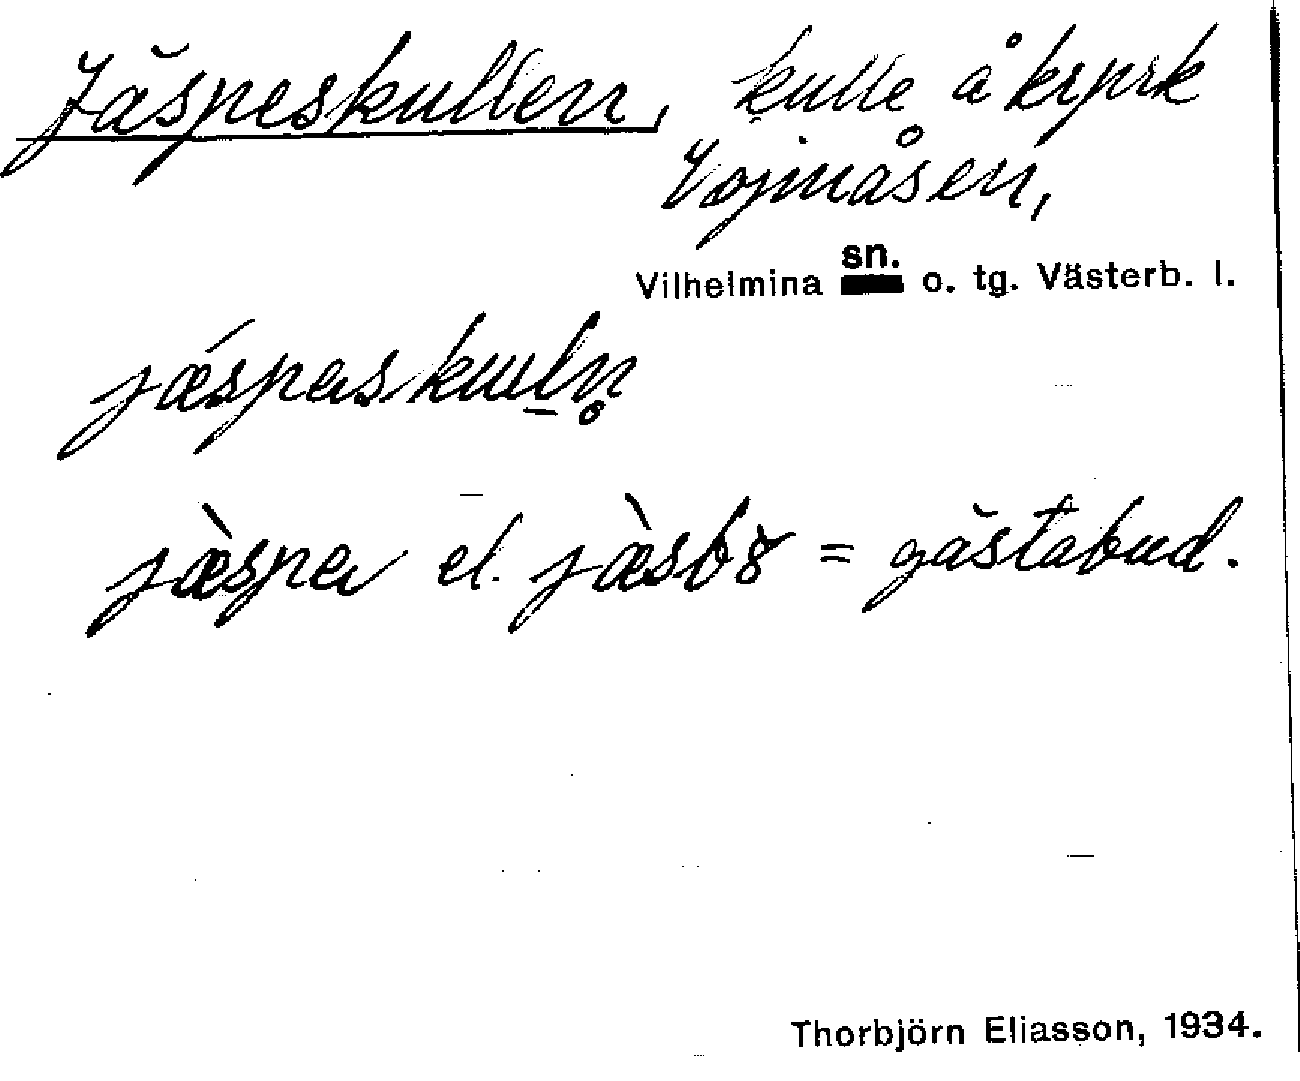 Jäspeskullen, kulle å krpsk
Vojmåsen,
Vilhelmina sn. o. tg. Västerb. l.
jǽspeskuln̥
jæ̀spe el. jæ̀sbə = gästabud.
Thorbjörn Eliasson, 1934.